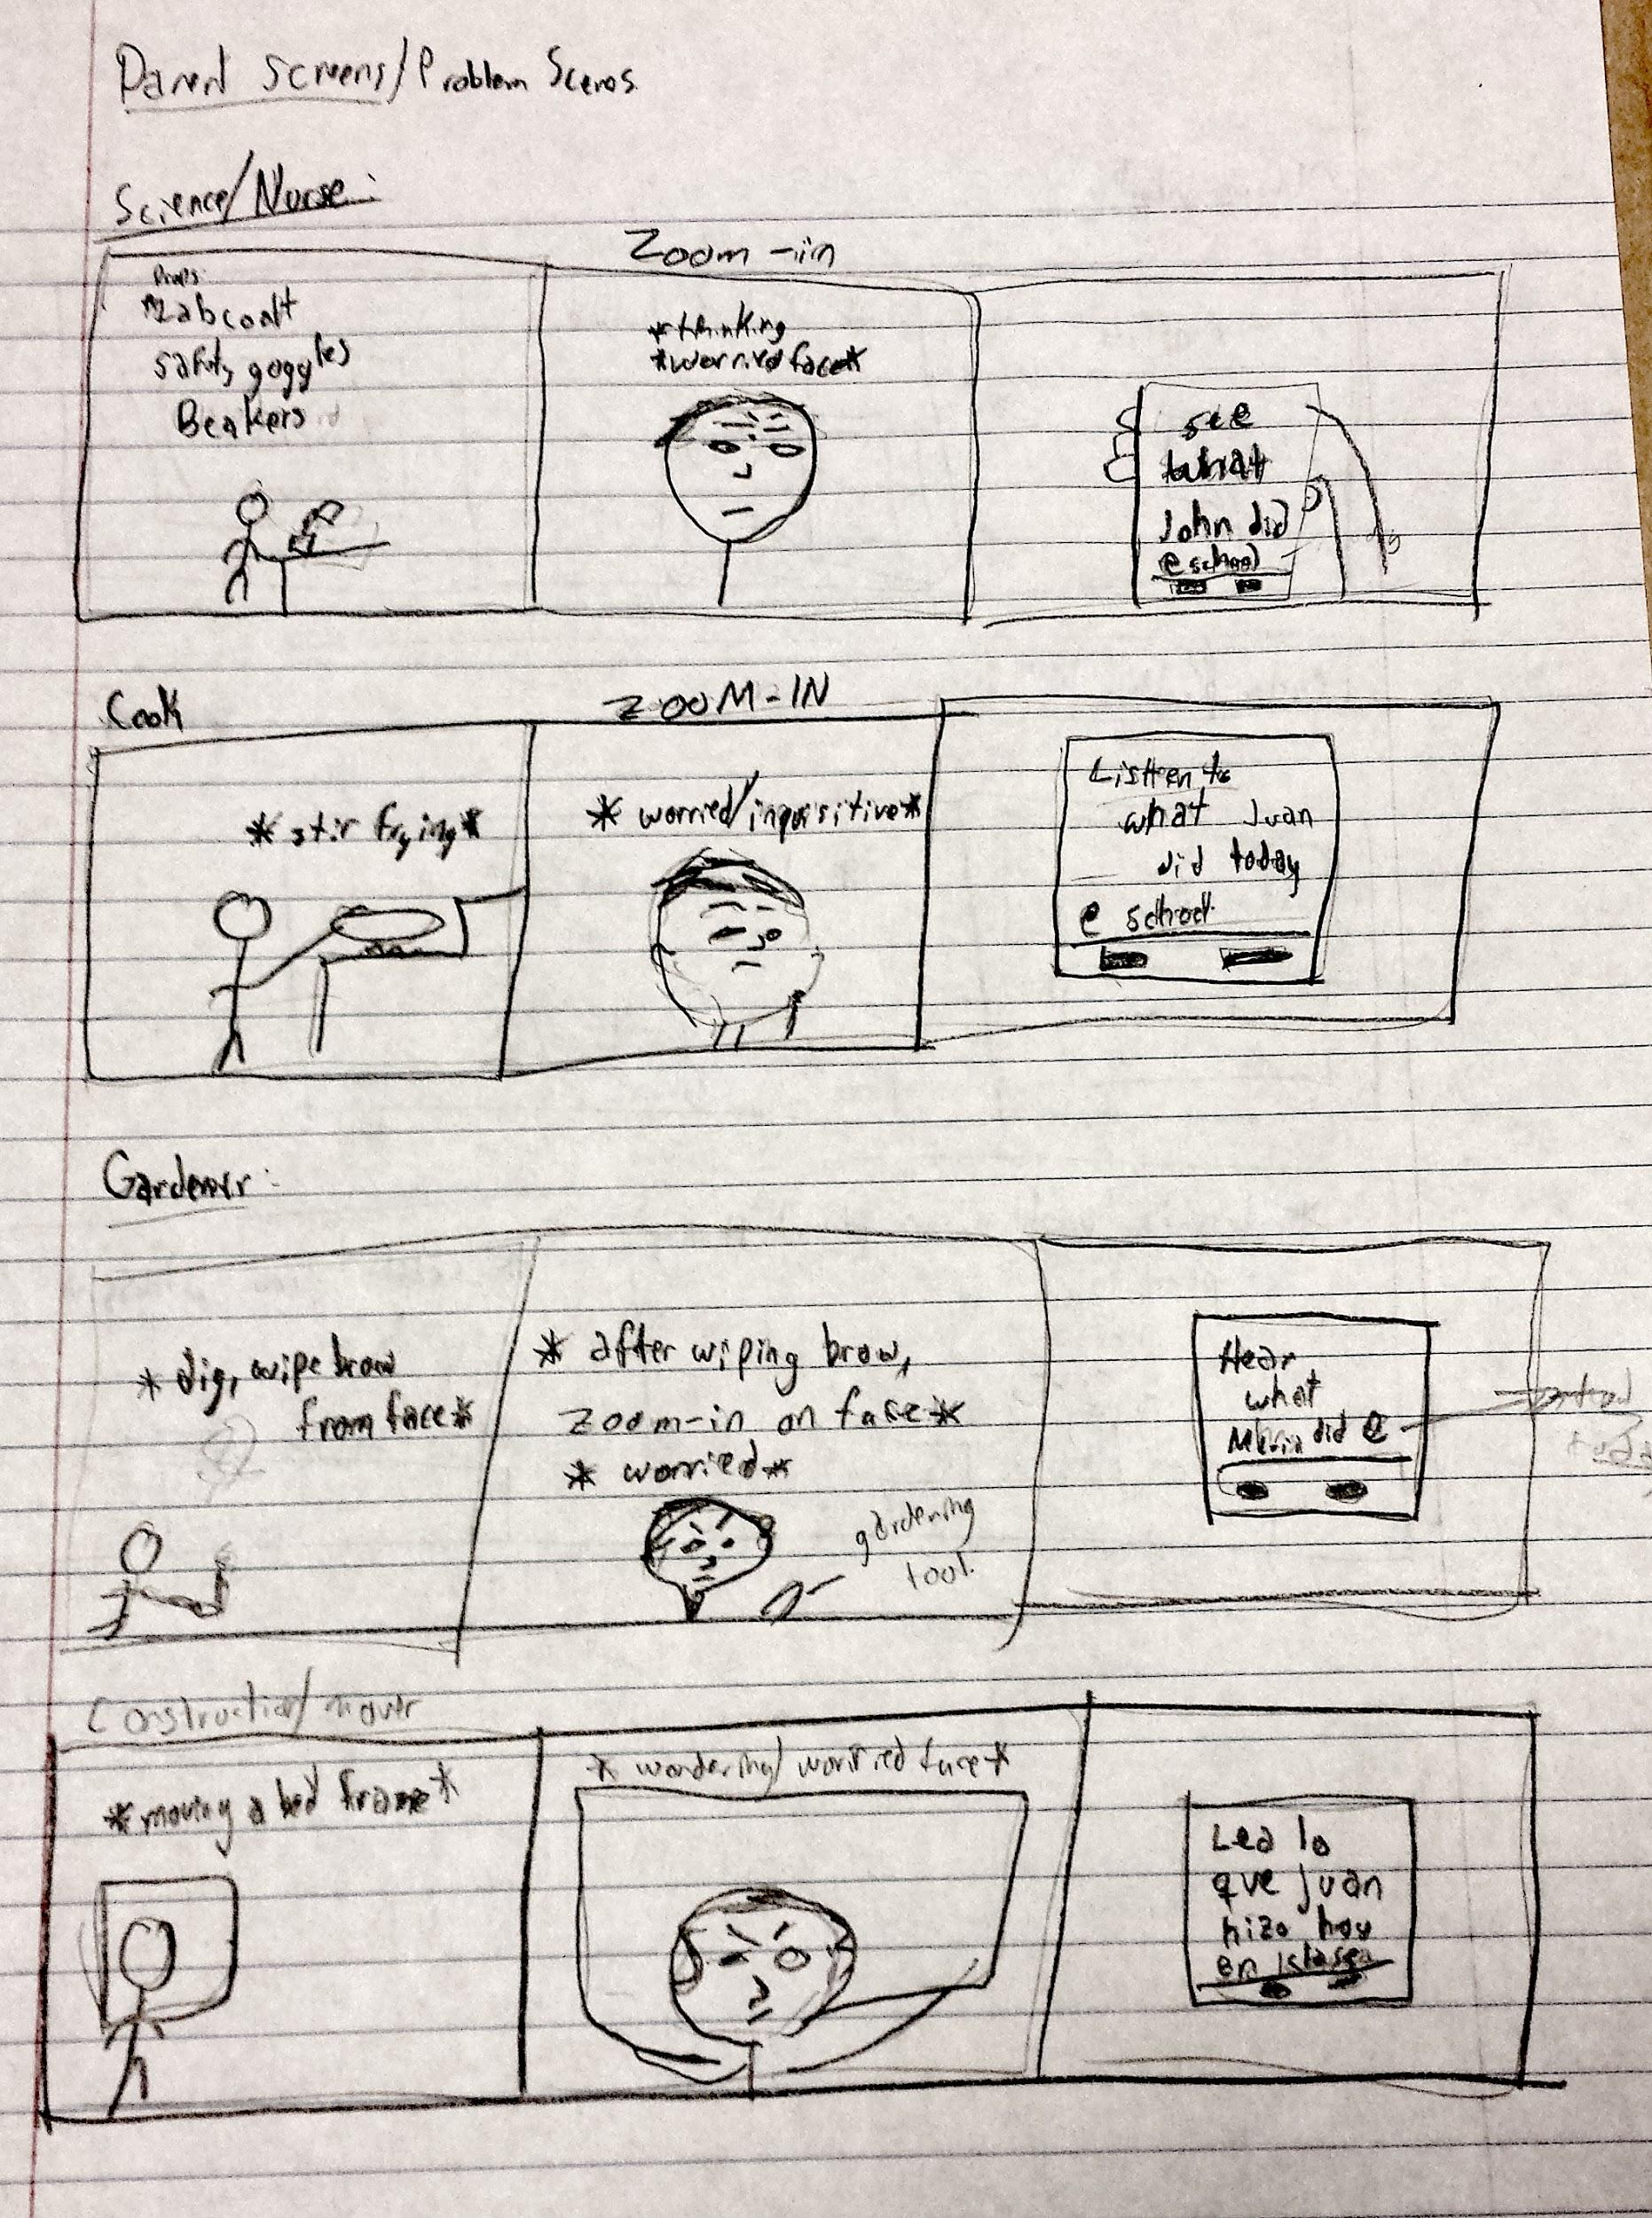 Parent Screens/Problem Scenes
Science/Nurse:
Zoom-in
Props:
Labcoat
safety goggles
Beakers
*thinking
*worried face*
see
what
John did
@ school
Cook
ZOOM-IN
*stir frying*
* worried/inquisitive*
Listen to
what Juan
did today
@ school
Gardener:
* dig, wipe brow
from face*
* after wiping brow,
zoom-in on face*
* worried*
gardening
tool
Hear
what
Maria did @
Construction/mover
*moving a bed frame*
* wondering/worried face*
Lea lo
que Juan
hizo hoy
en